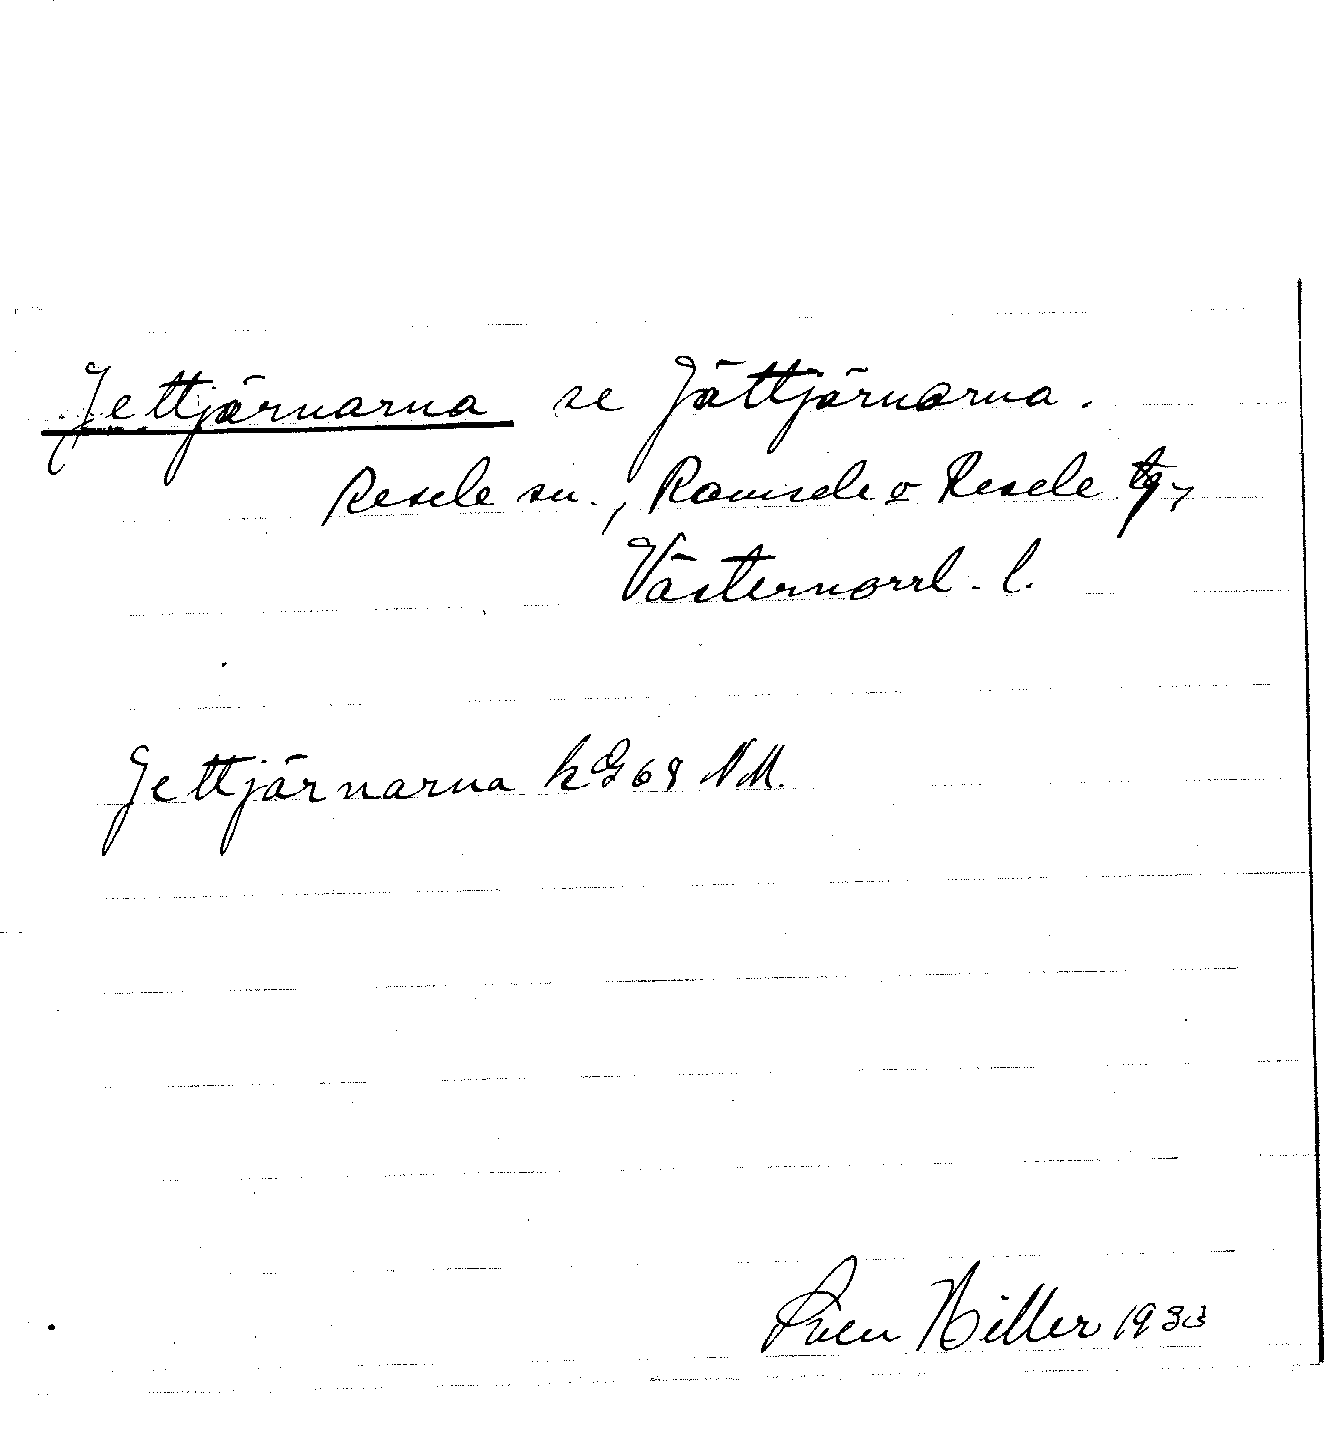 Jettjärnarna se Jättjärnarna.
Resele sn., Ramsele o Resele tg,
Västernorrl. l.
Jettjärnarna k G 68 NM.
Sven Hiller 1933